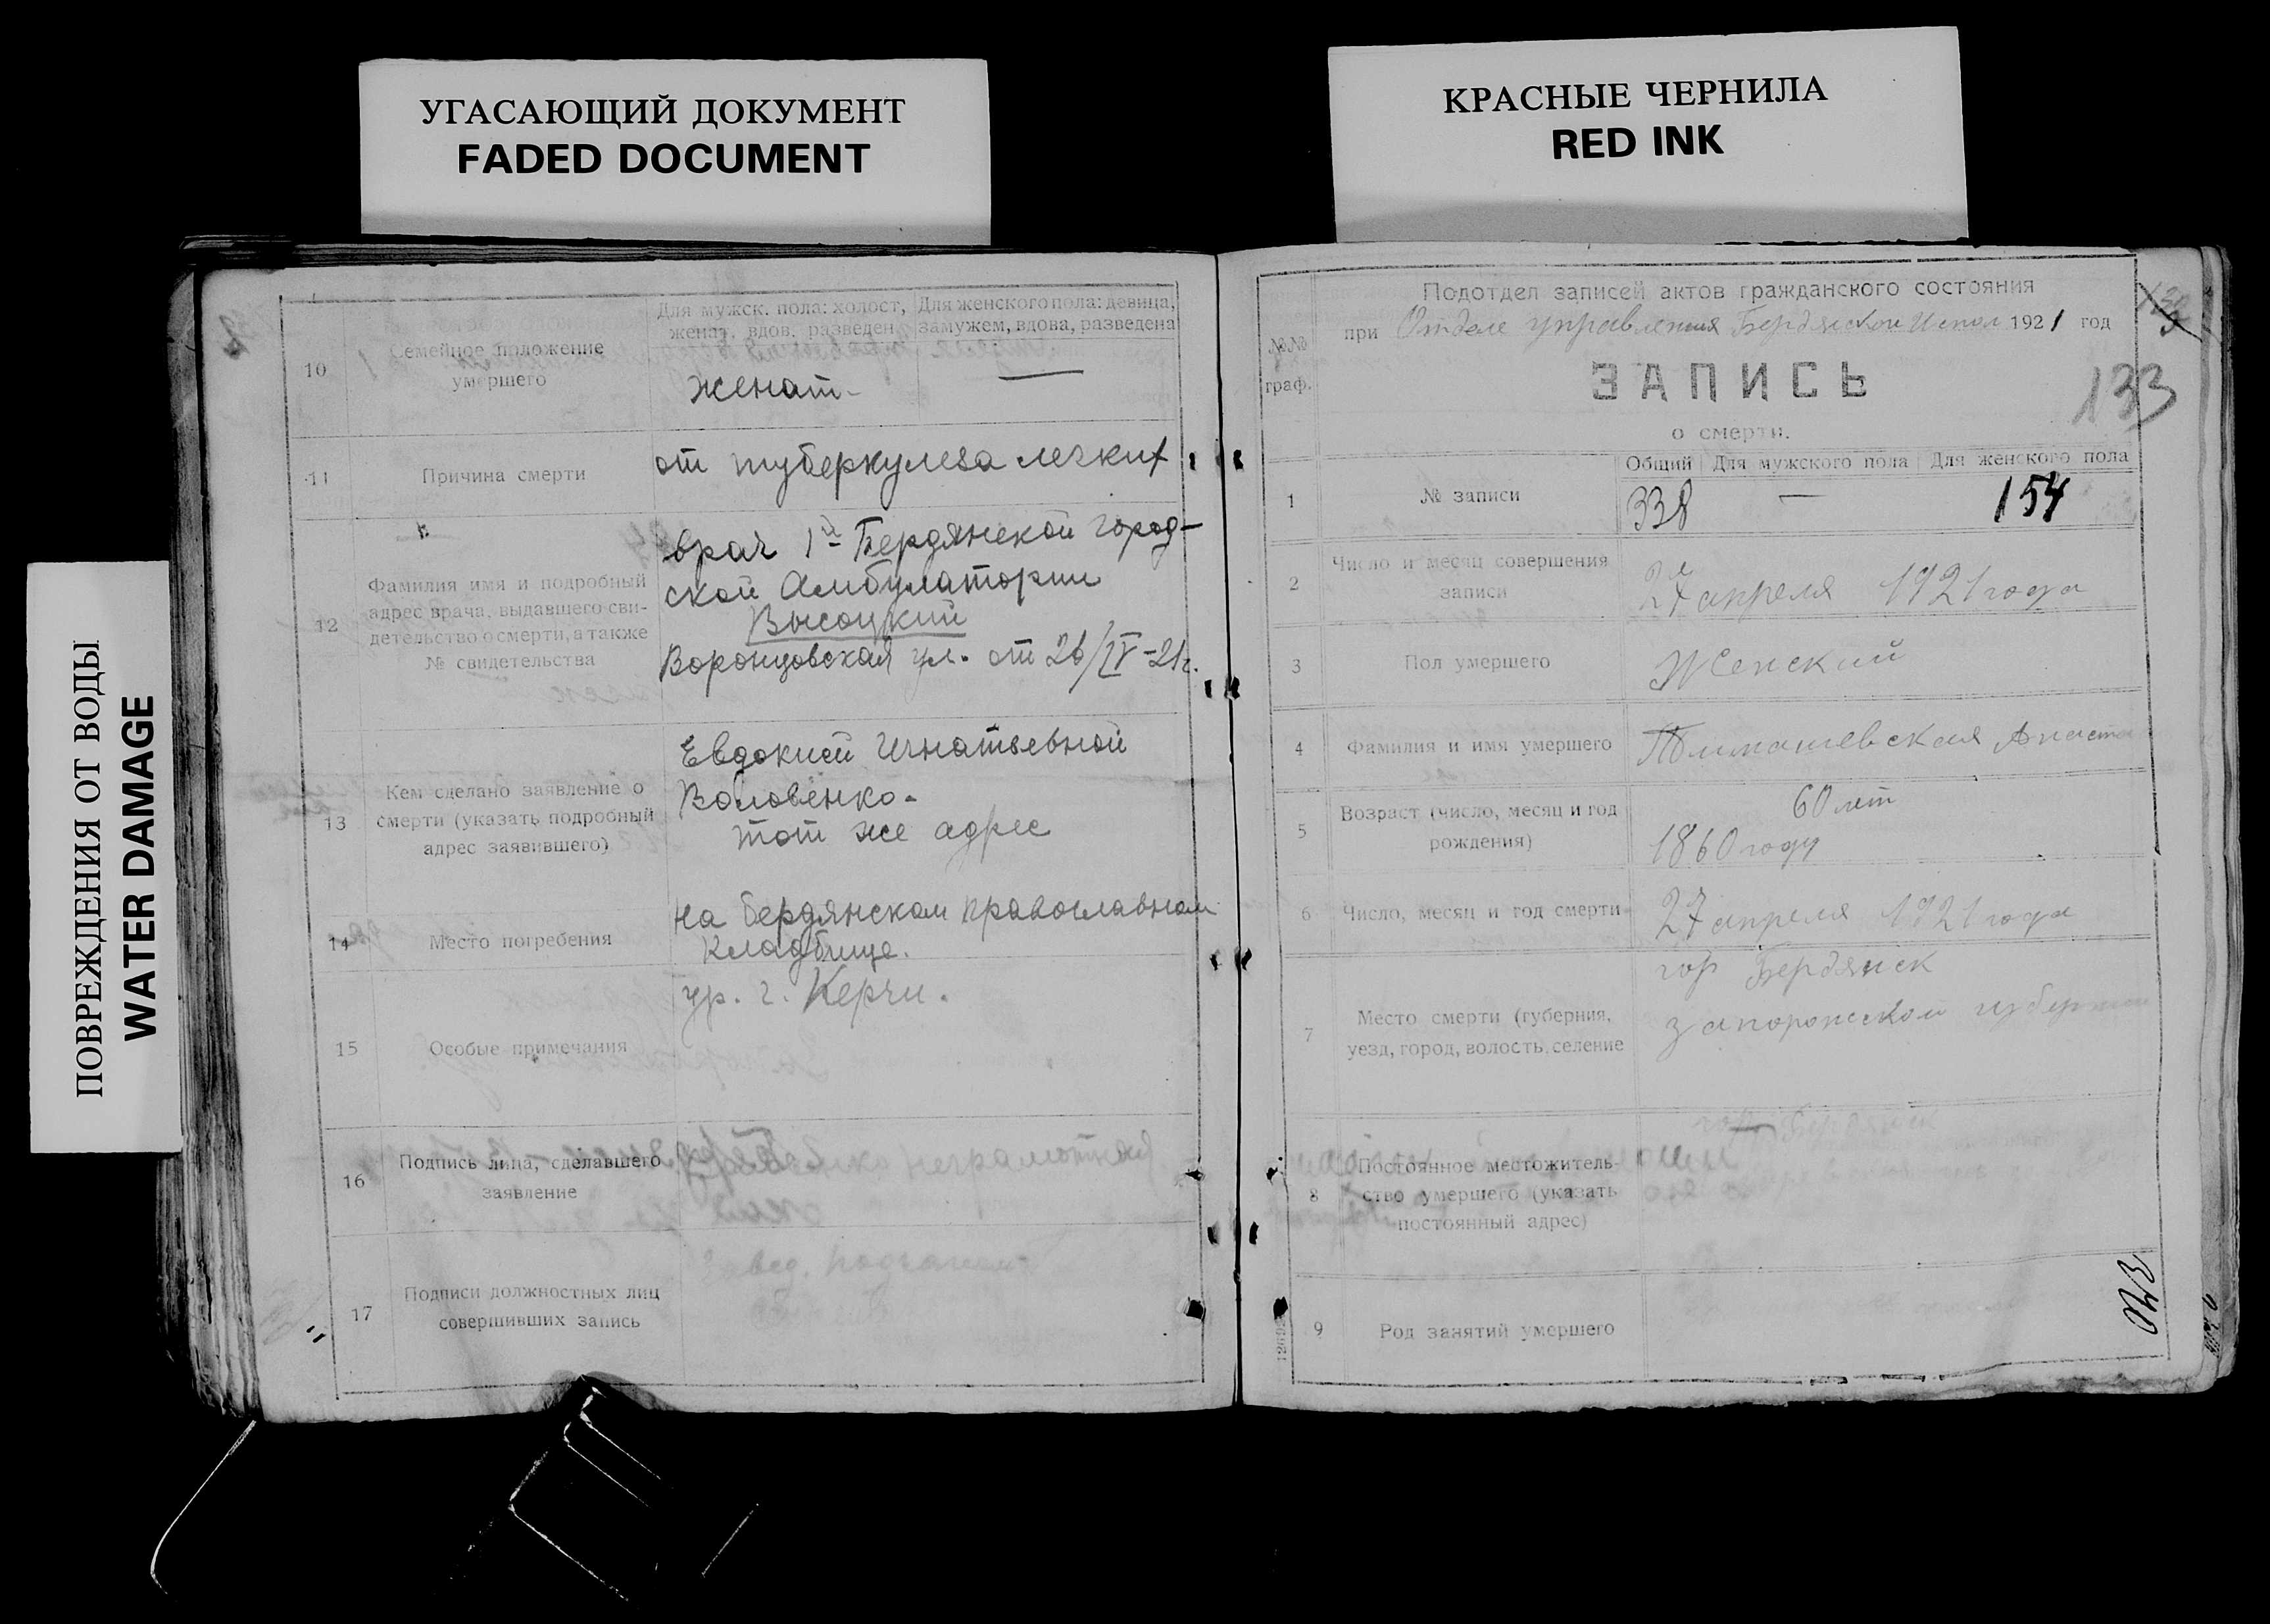 УГАСАЮЩИЙ ДОКУМЕНТ
FADED DOCUMENT
КРАСНЫЕ ЧЕРНИЛА
RED INK
ПОВРЕЖДЕНИЯ ОТ ВОДЫ
WATER DAMAGE
10
Семейное положение
умершего
Для мужск. пола: холост,
женат, вдов, разведен
Для женского пола: девица,
замужем, вдова, разведена
женат -
—
11
Причина смерти
от туберкулеза легких
12
Фамилия имя и подробный
адрес врача, выдавшего сви-
детельство о смерти, а также
№ свидетельства
врач 1й Бердянской город-
ской Амбулатории
Высоцкий
Воронцовская ул. от 26/IV-21г.
13
Кем сделано заявление о
смерти (указать подробный
адрес заявившего)
Евдокией Игнатьевной
Воловенко.
тот же адрес
14
Место погребения
на бердянском православном
кладбище.
15
Особые примечания
ур. г. Керчи.
16
Подпись лица, сделавшего
заявление
неграмотная
17
Подписи должностных лиц
совершивших запись
Завед.
№№
граф.
Подотдел записей актов гражданского состояния
при Отделе управления Бердянской Испол 1921 год
ЗАПИСЬ
о смерти.
133
1
№ записи
Общий
Для мужского пола
Для женского пола
338
—
154
2
Число и месяц совершения
записи
27 апреля 1921 года
3
Пол умершего
Женский
4
Фамилия и имя умершего
5
Возраст (число, месяц и год
рождения)
60 лет
1860 году
6
Число, месяц и год смерти
27 апреля 1921 года
7
Место смерти (губерния,
уезд, город, волость, селение
гор Бердянск
запорожской губернии
8
Постоянное местожитель-
ство умершего (указать
постоянный адрес)
гор Бердянск
9
Род занятий умершего